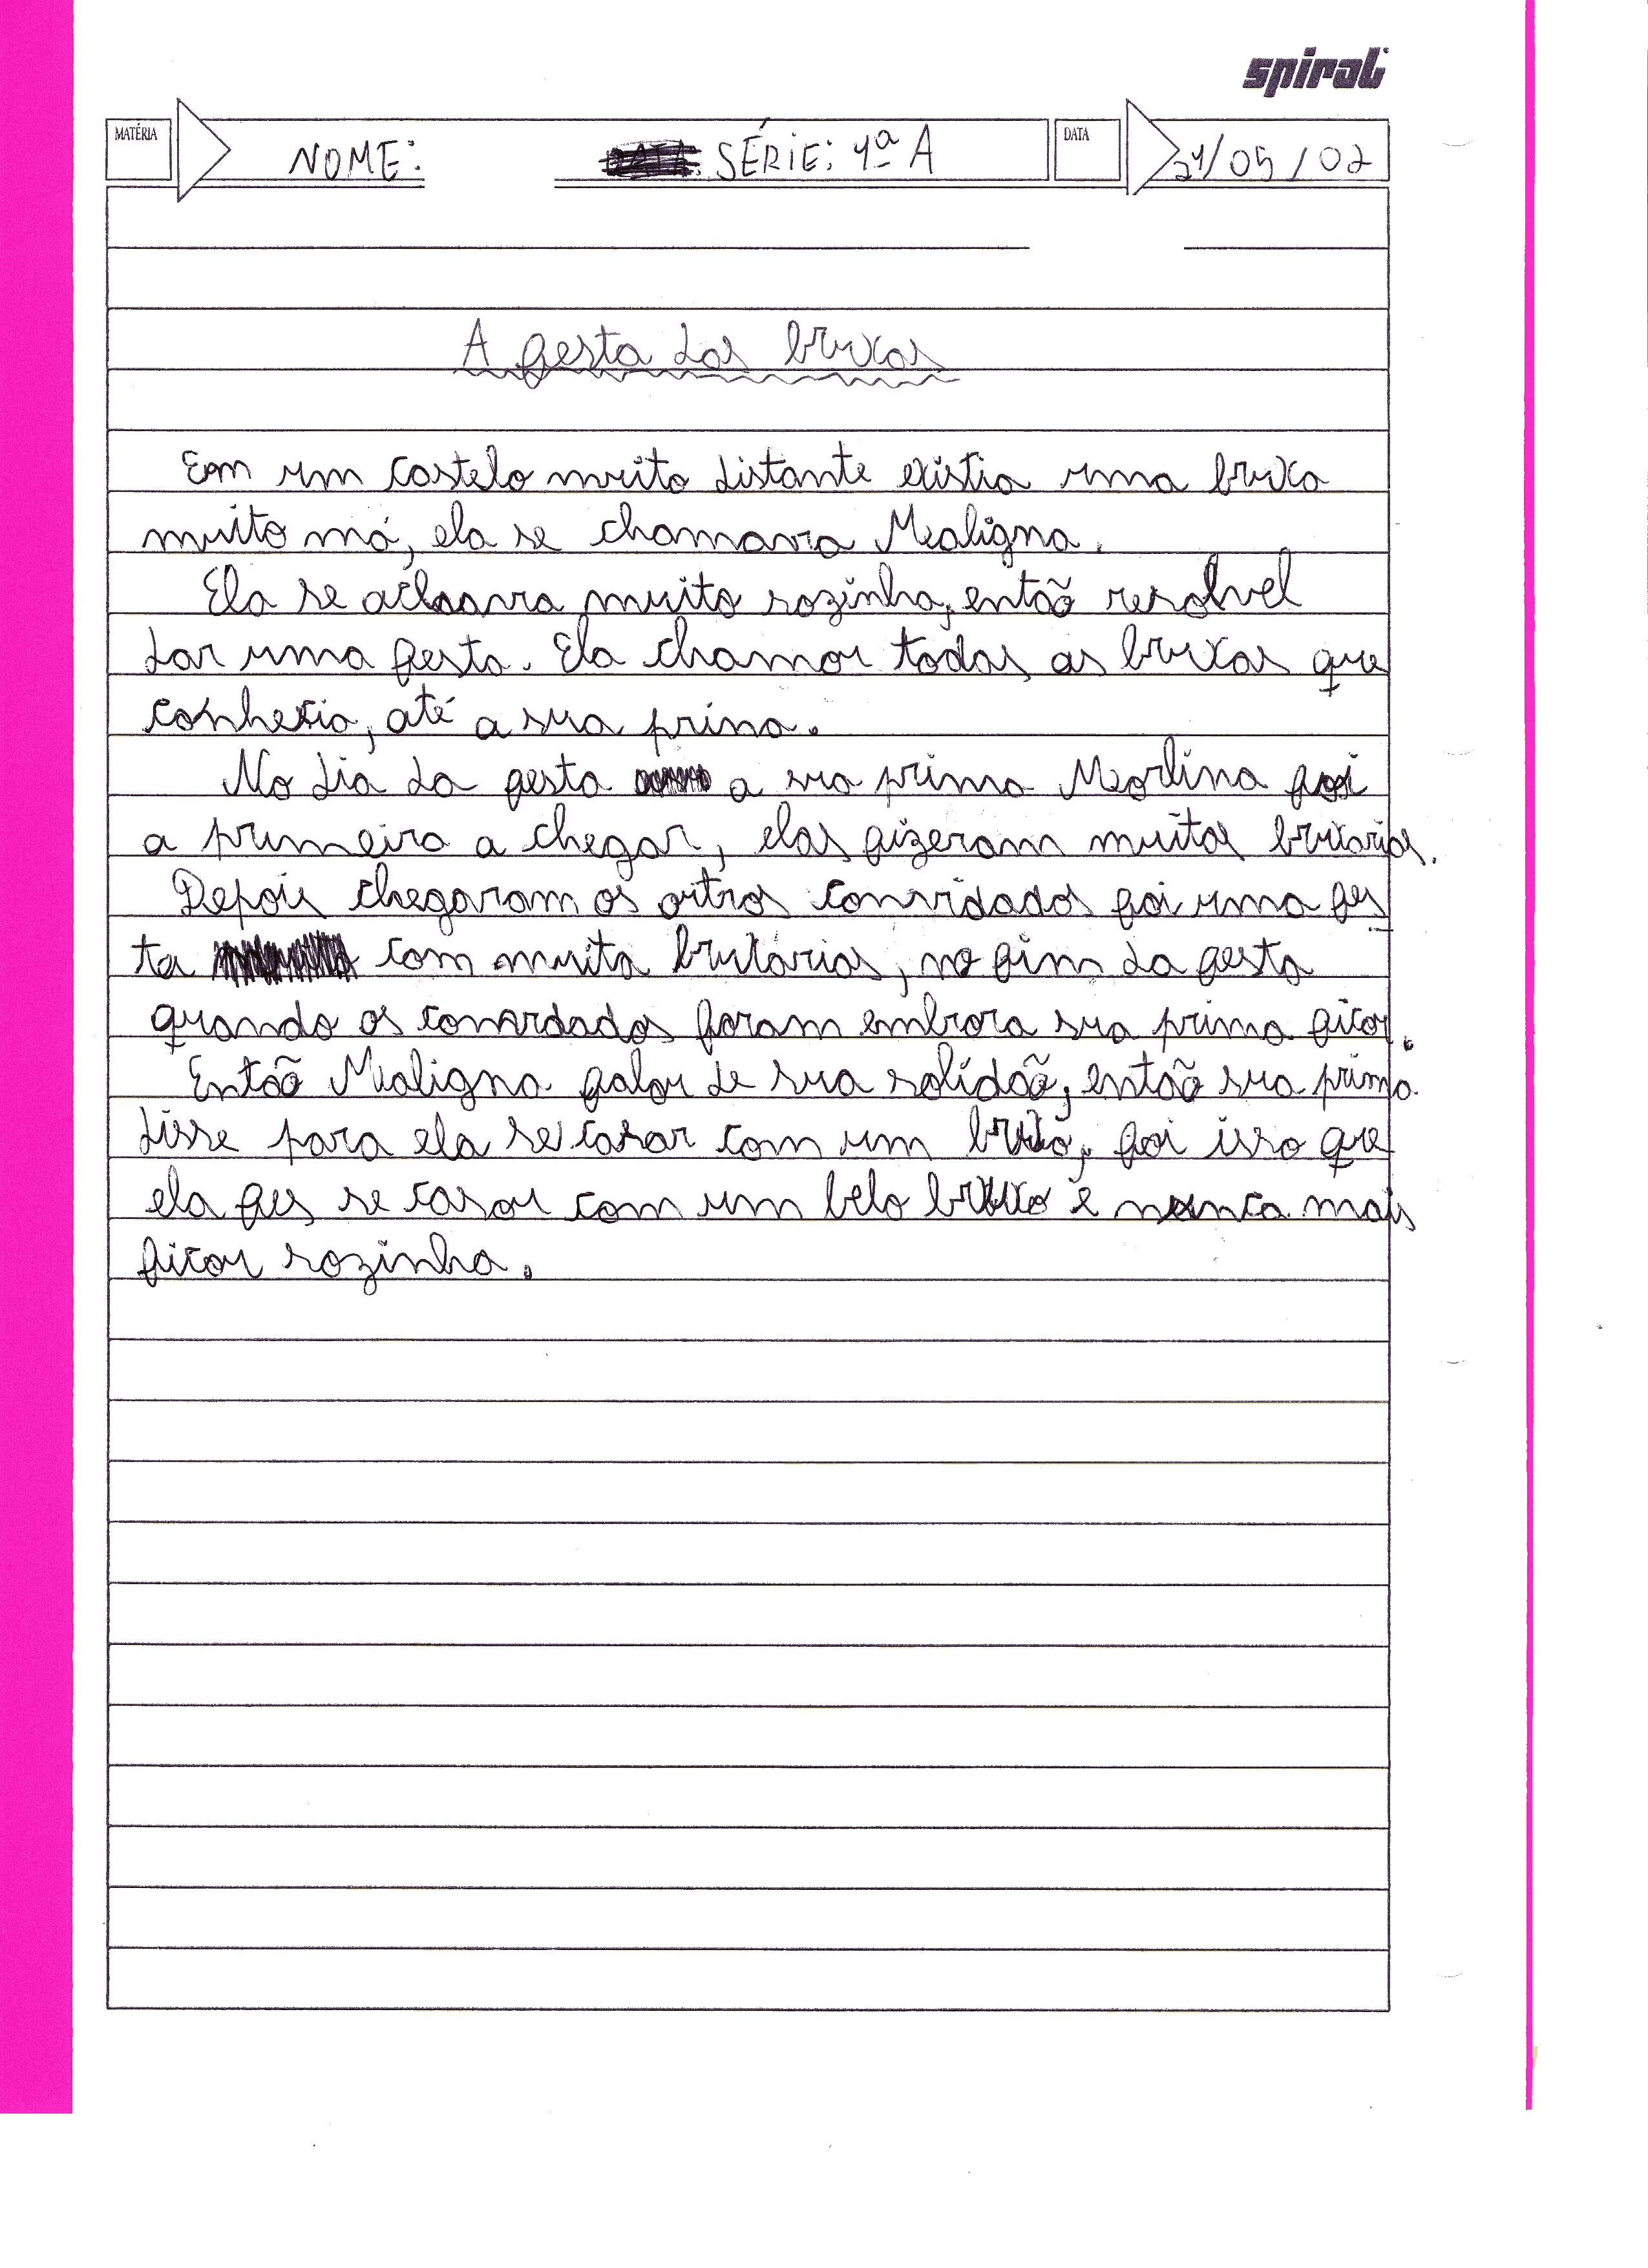 spiral
MATÉRIA NOME: SÉRIE: 4ª A DATA 21/05/02
A festa das bruxas
Em um castelo muito distante existia uma bruxa
muito má, ela se chamava Maligna.
Ela se achava muito sozinha, então resolvel
dar uma festa. Ela chamou todas as bruxas que
conhecia, até a sua prima.
No dia da festa a sua prima Merlina foi
a primeira a chegar, elas fizeram muitas bruxarias.
Depois chegaram os outros convidados foi uma fes
ta com muita bruxarias, no fim da festa
quando os convidados foram embora sua prima ficou.
Então Maligna falou de sua solidão, então sua prima
disse para ela se casar com um bruxo, foi isso que
ela fes se casou com um belo bruxo e nunca mais
ficou sozinha.